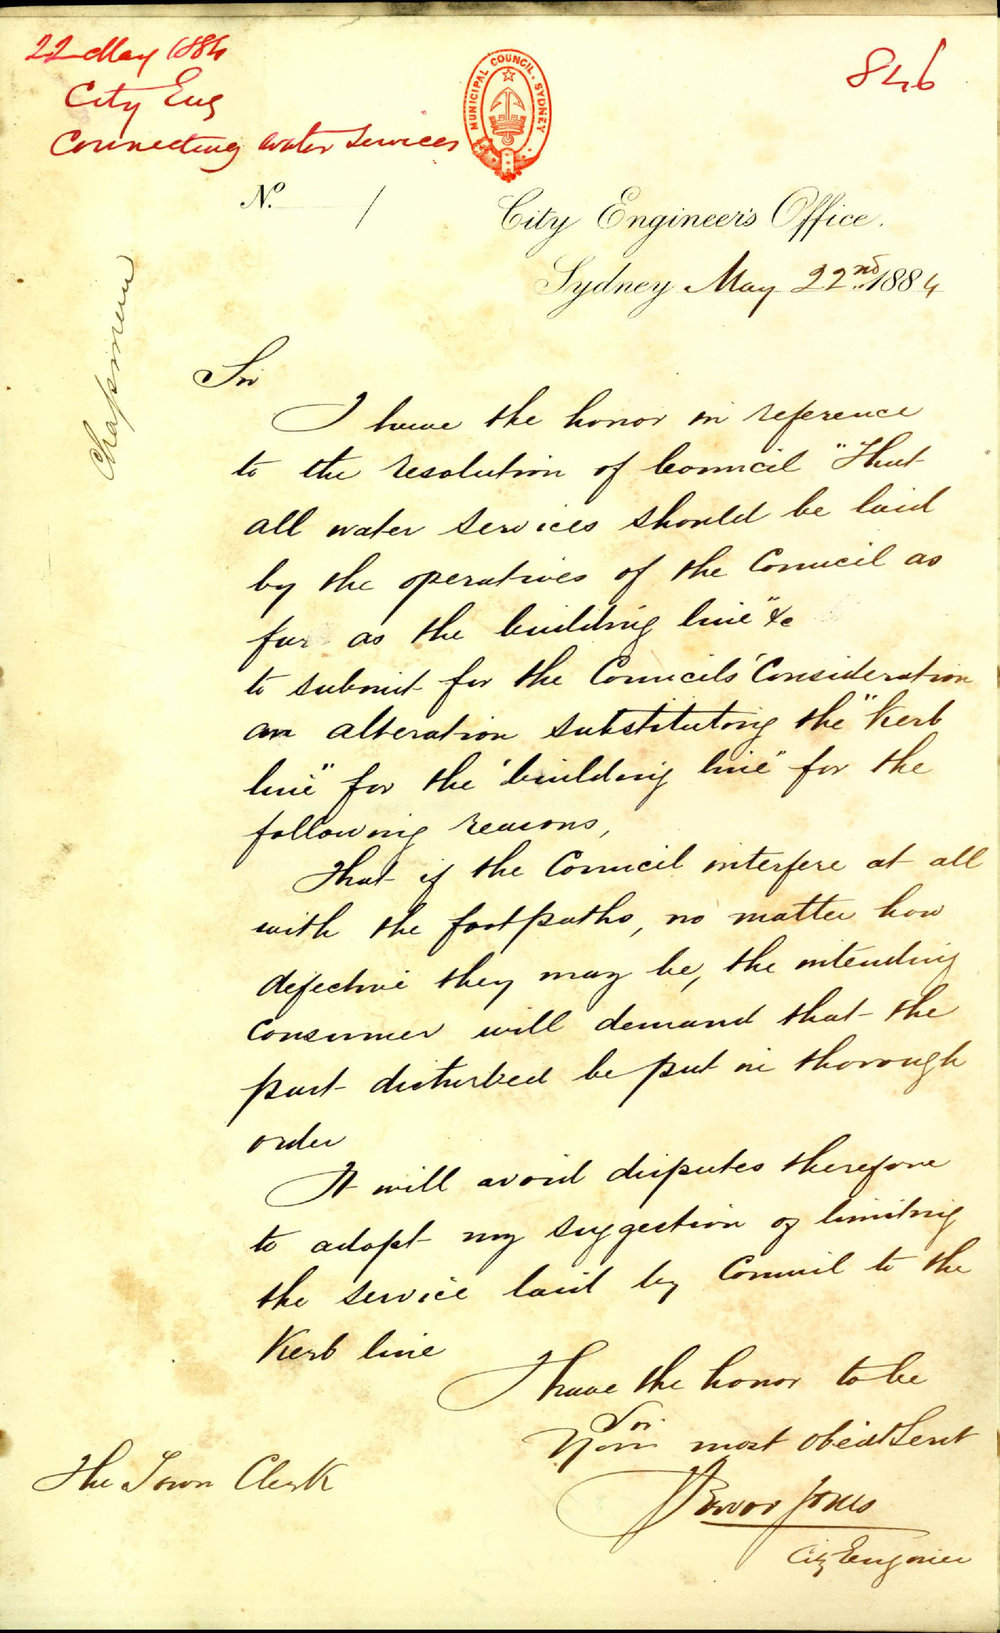 22 May 1884
City Eng
Connecting water services
846
MUNICIPAL COUNCIL. SYDNEY
No. /
City Engineer's Office.
Sydney May 22nd 1884
Chapman
Sir
I have the honor in reference
to the resolution of Council "That
all water services should be laid
by the operatives of the Council as
far as the building line" &c
to submit for the Councils' Consideration
an alteration substituting the "Kerb
line" for the "building line" for the
following reasons,
That if the Council interfere at all
with the footpaths, no matter how
defective they may be, the intending
Consumer will demand that the
part disturbed be put in thorough
order
It will avoid disputes therefore
to adopt my suggestion of limiting
the service laid by Council to the
Kerb line
I have the honor to be
Sir
Your most obedt Servt
Trevor Jones
City Engineer
The Town Clerk